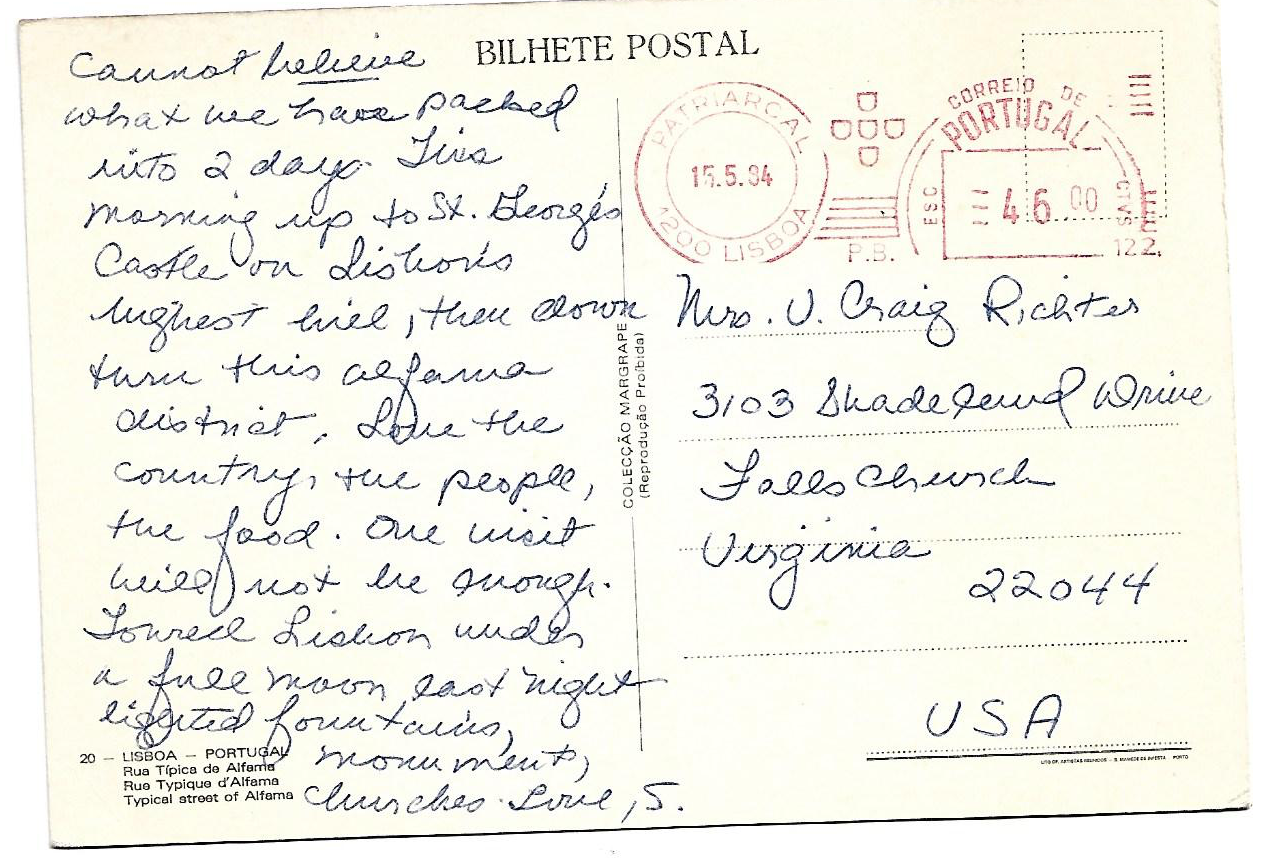 BILHETE POSTAL
Cannot believe
what we have packed
into 2 days. This
morning up to St. George's
Castle on Lisbon's
highest hill, then down
turu this alfama
district. Love the
country, the people,
the food. One visit
will not be enough.
Toured Lisbon under
a full moon last night
lighted fountains,
monuments,
churches. Love, S.
20 — LISBOA — PORTUGAL
Rua Típica de Alfama
Rue Typique d'Alfama
Typical street of Alfama
COLECÇÃO MARGRAPE
(Reprodução Proibida)
PATRIARCAL
15.5.84
1200 LISBOA
P.B.
CORREIO DE
PORTUGAL
ESC
46 00
CTVS
122
Mrs. V. Craig Richter
3103 Shadeland Drive
Falls Church
Virginia
22044
USA